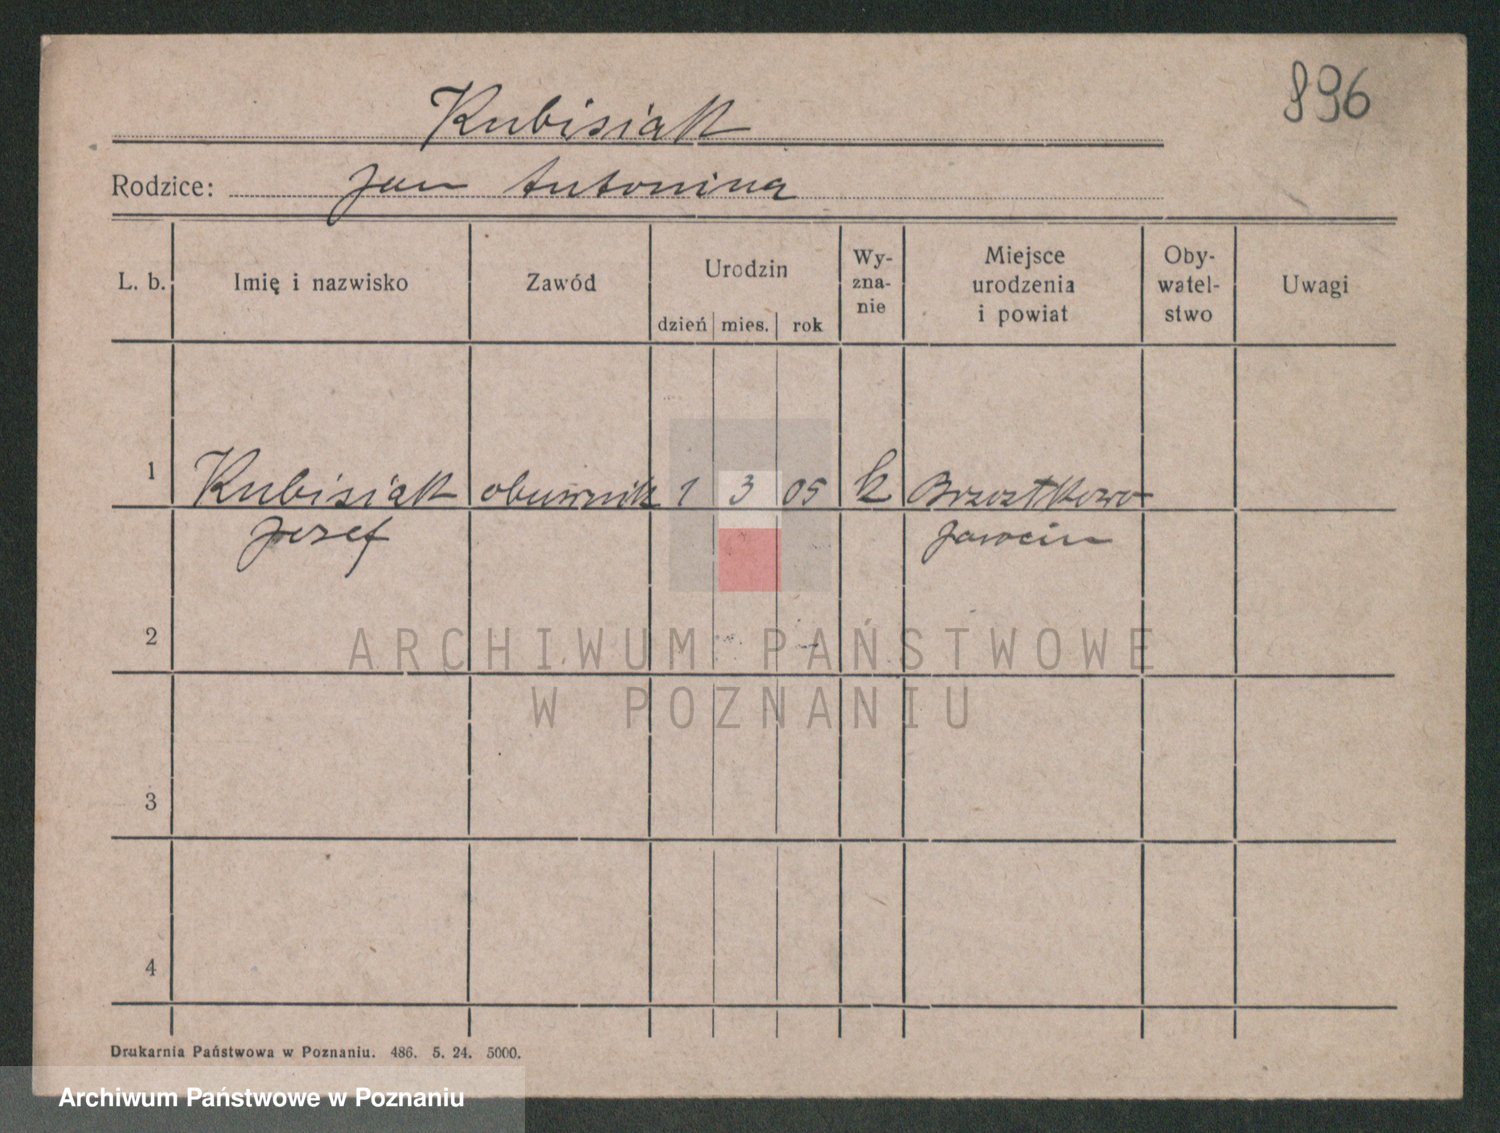 896
Kubisiak
Rodzice: Jan Antonina
L. b. Imię i nazwisko Zawód Urodzin dzień mies. rok Wy-zna-nie Miejsce urodzenia i powiat Oby-watel-stwo Uwagi
1 Kubisiak obuwnik 1 3 05 k Brzostkowo
Józef Jarocin
2
ARCHIWUM PAŃSTWOWE
W POZNANIU
3
4
Drukarnia Państwowa w Poznaniu. 486. 5. 24. 5000.
Archiwum Państwowe w Poznaniu